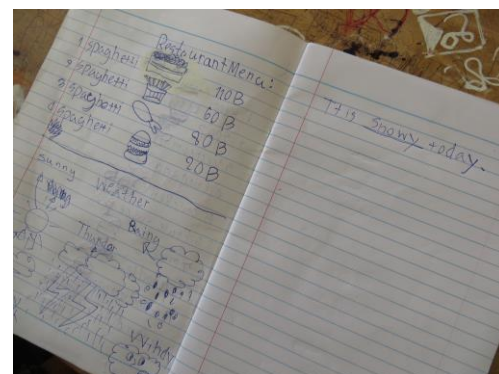 Restaurant Menu:
1 Spaghetti 110 B
2 Spaghetti 60 B
3 Spaghetti 80 B
4 Spaghetti 20 B
Weather
sunny
Thunder
Raing
Windy
It is Snowy today.